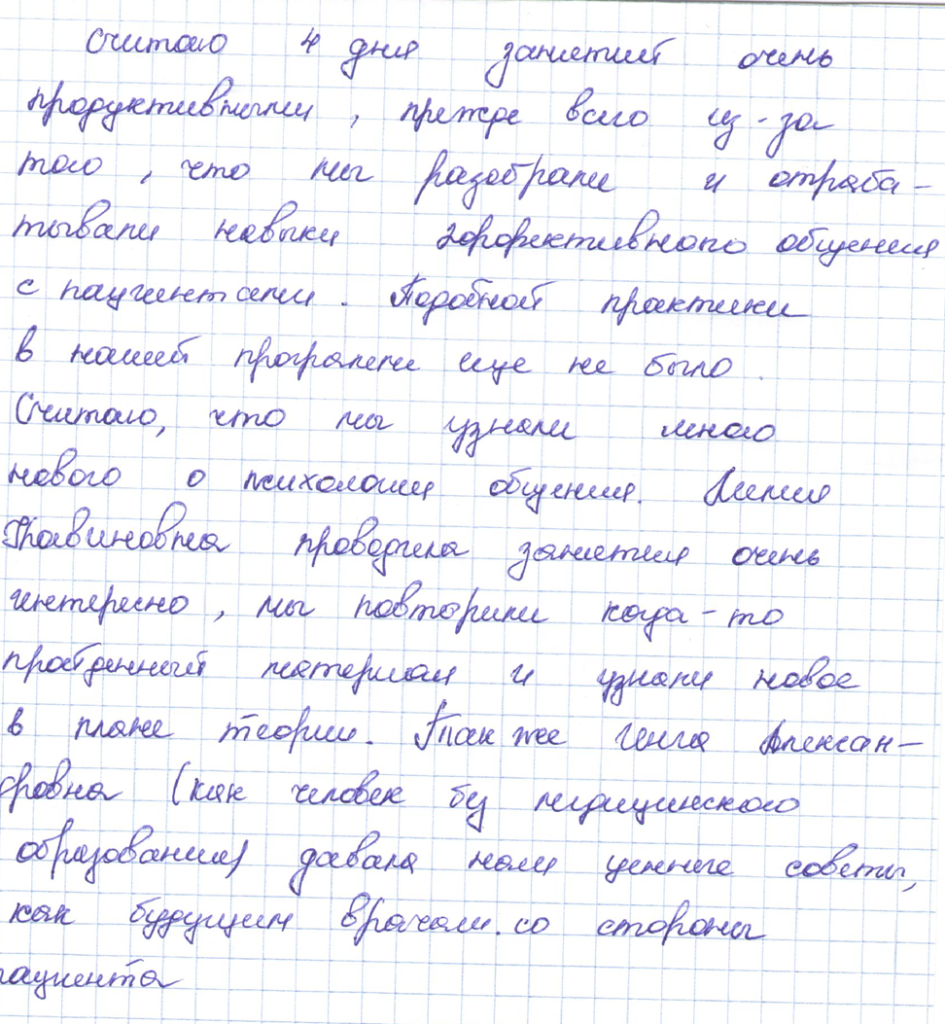 Считаю 4 дня занятий очень
продуктивными, прежде всего из-за
того, что мы разобрали и отраба-
тывали навыки эффективного общения
с пациентами. Подобной практики
в нашей программе еще не было.
Считаю, что мы узнали много
нового о психологии общения. Лилия
проводила занятия очень
интересно, мы повторили когда-то
пройденный материал и узнали новое
в плане теории. Также Инга Алексан-
дровна (как человек без медицинского
образования) давала нам ценные советы,
как будущим врачам. со стороны
пациента